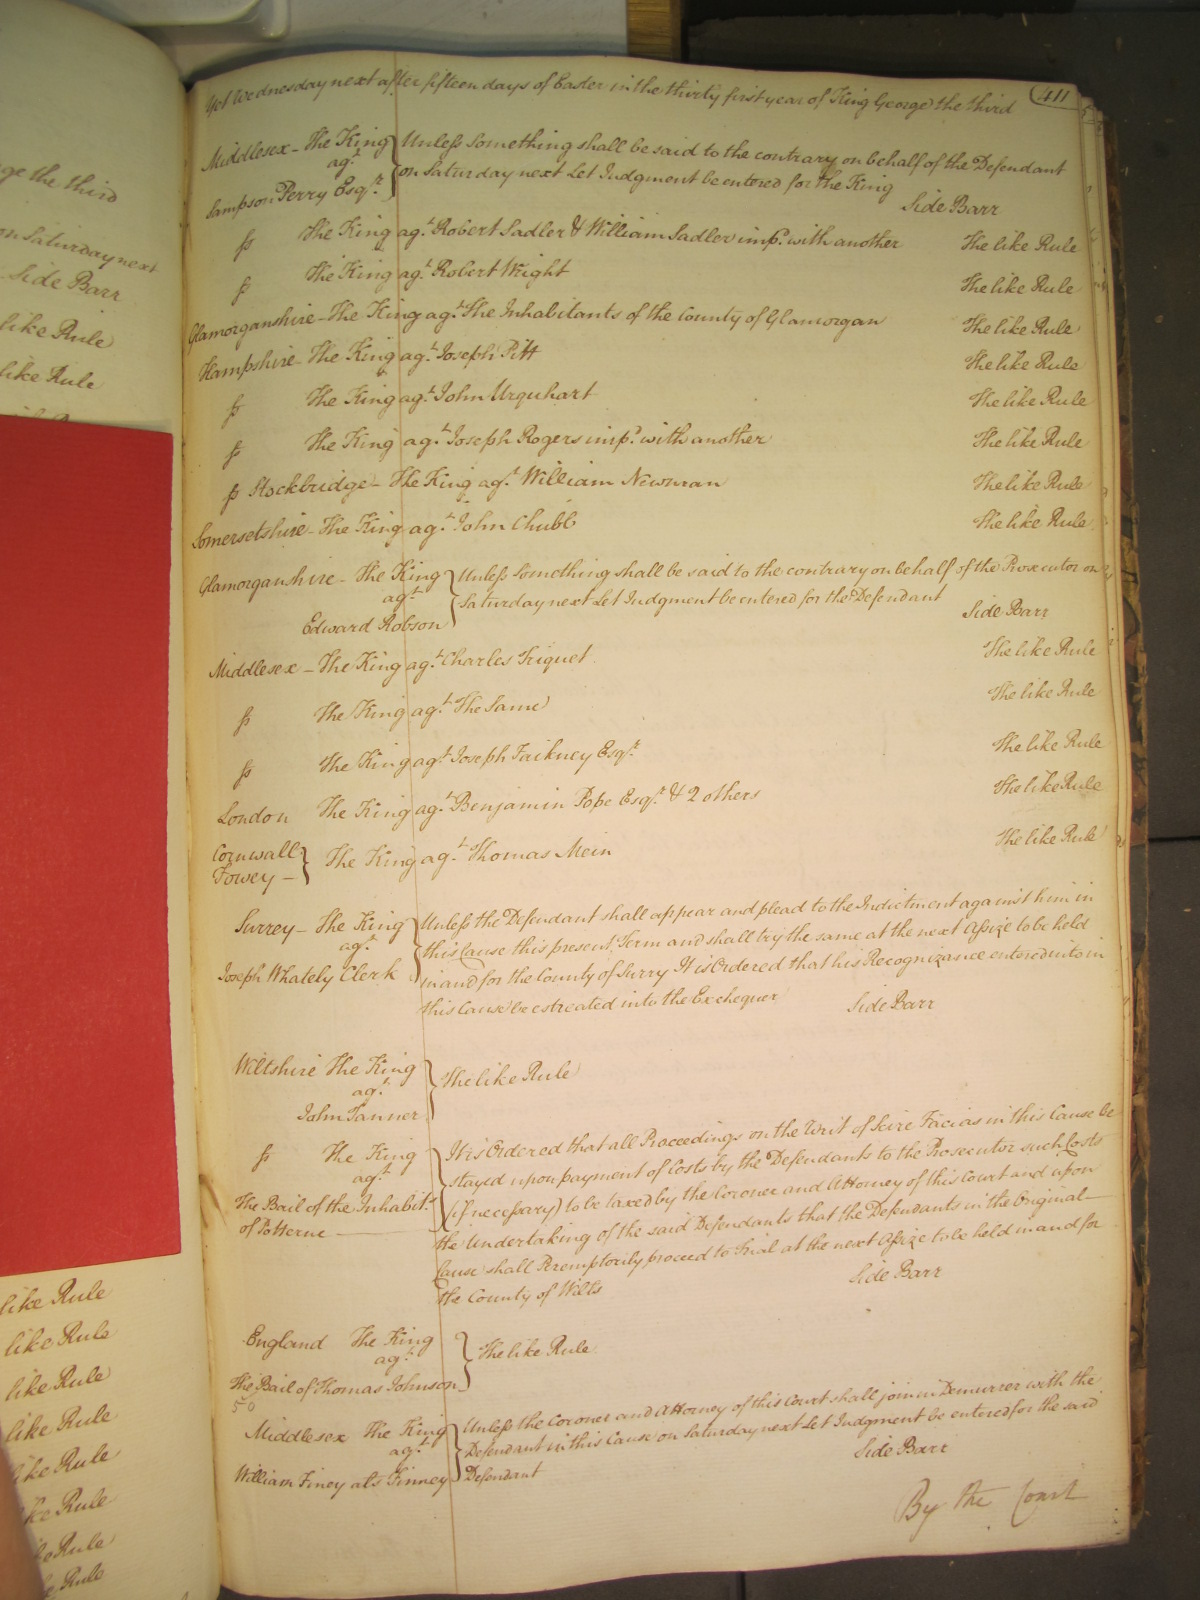 ge the third
on Saturday next
Side Barr
like Rule
like Rule
like Rule
like Rule
like Rule
like Rule
like Rule
like Rule
like Rule
Rule
Yet Wednesday next after fifteen days of Easter in the thirty first year of King George the third
411
Middlesex – The King
agt
Sampson Perry Esqr.
Unless something shall be said to the contrary on behalf of the Defendant
on Saturday next Let Judgment be entered for the King
Side Barr
ss The King agt. Robert Sadler & William Sadler impd. with another The like Rule
ss The King agt. Robert Wright The like Rule
Glamorganshire – The King agt. The Inhabitants of the County of Glamorgan The like Rule
Hampshire – The King agt. Joseph Pitt The like Rule
ss The King agt. John Urquhart The like Rule
ss The King agt. Joseph Rogers impd. with another The like Rule
ss Stockbridge – The King agt. William Newman The like Rule
Somersetshire – The King agt. John Chubb The like Rule
Glamorganshire – The King
agt
Edward Robson
Unless Something shall be said to the contrary on behalf of the Prosecutor on
Saturday next Let Judgment be entered for the Defendant
Side Barr
Middlesex – The King agt. Charles Triquet The like Rule
ss The King agt. The Same The like Rule
ss The King agt. Joseph Faikney Esqr. The like Rule
London The King agt. Benjamin Pope Esqr. & 2 others The like Rule
Cornwall
Fowey –
The King agt. Thomas Mein The like Rule
Surrey – The King
agt.
Joseph Whately Clerk
Unless the Defendant shall appear and plead to the Indictment against him in
this Cause this present Term and shall try the same at the next Assize to be held
in and for the County of Surry It is Ordered that his Recognizance entered into in
this Cause be estreated into the Exchequer
Side Barr
Wiltshire The King
agt.
John Tanner
The like Rule
ss The King
agt.
The Bail of the Inhabits.
of Potterne
It is Ordered that all Proceedings on the Writ of Scire Facias in this Cause be
stayed upon payment of Costs by the Defendants to the Prosecutor such Costs
(if necessary) to be taxed by the Coroner and Attorney of this Court and upon
the Undertaking of the said Defendants that the Defendants in the Original
Cause shall Peremptorily proceed to Trial at the next Assize to be held in and for
the County of Wilts
Side Barr
England The King
agt.
The Bail of Thomas Johnson
The like Rule
50
Middlesex The King
agt.
William Finey als Finney
Unless the Coroner and Attorney of this Court shall join in Demurrer with the
Defendant in this Cause on Saturday next Let Judgment be entered for the said
Defendant
Side Barr
By the Court